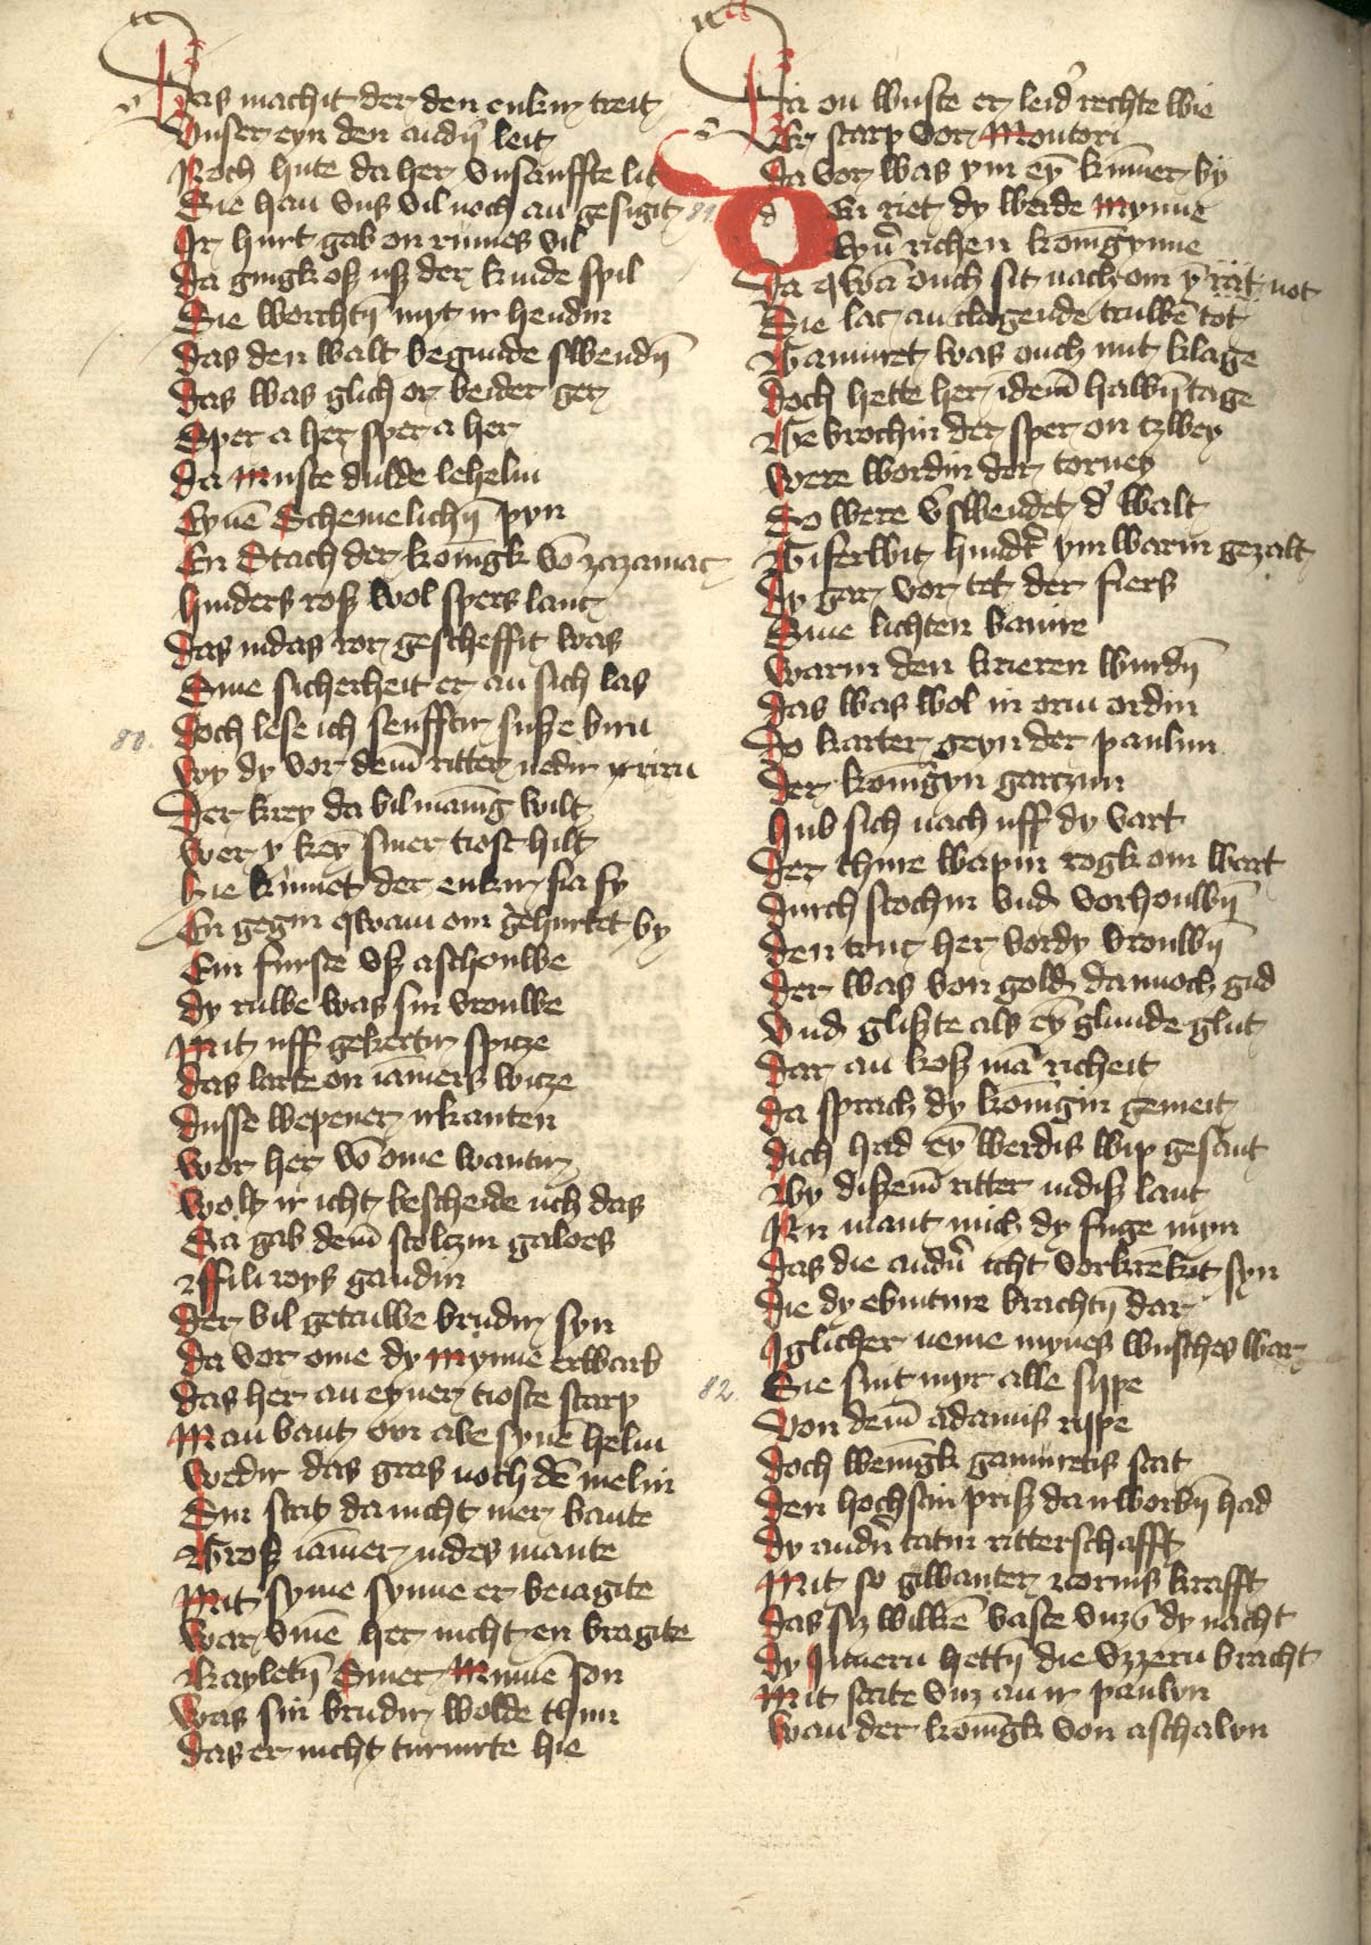 Das machit der den enkir treit
Vnser eyn den andīn leit
Noch hute da her vnsanffte lit
Sie han vns vil noch an gesigit
Ir hurt gab on rumes vil
da gingk oß uß der kinde spil
Sie worchtī myt ir hendin
das den walt begunde swendī
das was glich or beider ger
Sper a her sper a her
da Muste dulde lehelin
Eynē Schemelichī pyn
En Stach der konīgk vō zazamac
hinders roß wol spers lanc
das indas ror gescheffit was
Sine sicherheit er an sich las
80. doch lese ich senfftir suße birn
wy dy vor dem̄ ritter nedir ririn
Der krey da vil manīg wilt
wer y keȳ siner tiost hilt
hie kūmet der enkir fia fy
En gegin qwam om gehurtet by
Ein furste vß aschouwe
dy ruwe was sin vrouwe
Mit uff gekertir spitze
das larte on iamers witze
disse wepener irkanten
wor her vō ome wantir
wolt ir icht bescheide uch das
Sa gab dem̄ stolczin galoes
ffili roys gandin
der vil getruwe brudir syn
da vor ome dy Mynne erwarb
das her an eyner tioste starp
Man bant oor abe synē helm
wedir das gras noch dē melm
Sin strit da nicht mer bante
Groß iamer indes mante
Mit syme synne er beiagite
war vmē her nicht en bragite
kayletī Siner Mumē son
was sin brudir wolde thun
das er nicht turnirte hie
Da on wuste er leid' rechte wie
Er starp vor Montori
da vor was ym eȳ kūmer by
81. d En riet dy werde Mynne
Eyn' richen konīgynne
Da qwā ouch sit nach om ȳ rat not
Sie lac an clagende truwē tot
Gamuret was ouch mit klage
doch hette her idem̄ halwī tage
Ge brochin der sper on tzwey
were wordin der torney
So were v'swendet d' walt
Giferwit hund't ym warin gezalt
dy gar vor tet der fiers
Sine lichten banire
warin den krieren wurdī
das was wol in orin ordin
do karter geyn der paulun
der konīgyn garczun
hub sich nach uff dy vart
der thure wapin rogk om wart
durch stochin vnd vorhouwī
den truc her vor dy vrouwī
der was von gold dannoch gud
vnd glißte als eȳ gluude glut
dar an koß mā richeit
da sprach dy konīgin gemeit
dich had eȳ werdis wip gesant
By dißem̄ ritter indiß lant
Nu mant mich dy fuge myn
das die andn' icht vorkrēket syn
die dy ebinture brachtī dar
Iglicher neme mynes wusches war
82. Sie sint myr alle sippe
von dem̄ adamis rippe
doch wenīgk gamuretis stat
den hochstin priß dan worbī had
dy andn' tatin ritterschafft
Mit so giwanter zornis krafft
das sy wilkē vaste vnzō dy nacht
dy Innern hettī die vzzern bracht
Mit strite vnz an ir paulyn
wan der konīgk von aschalyn